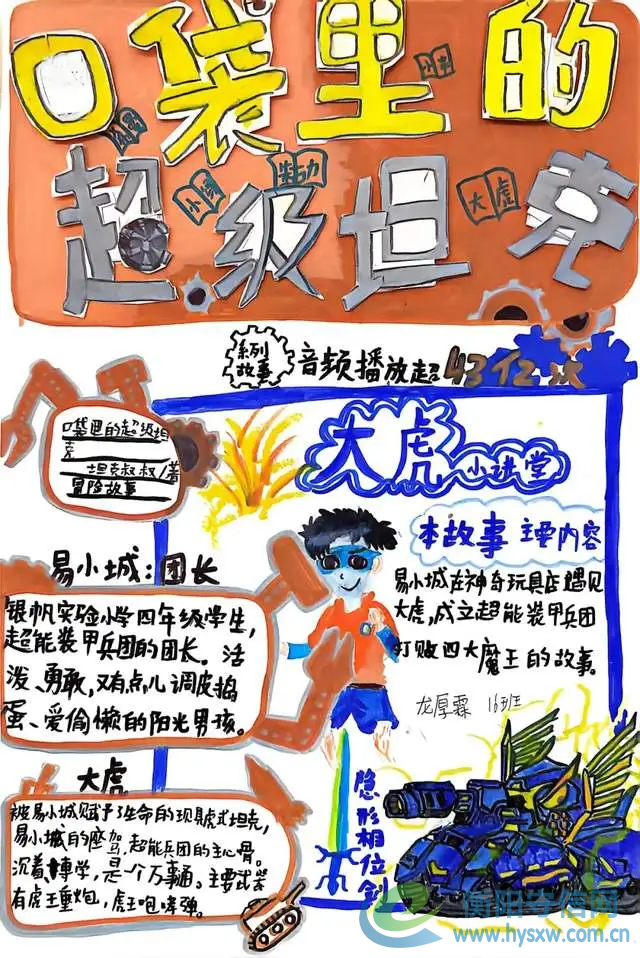 口袋里的
超级坦克
小城
生动
大虎
系列
故事
音频播放超43亿次
口袋里的超级坦
克
坦克叔叔/著
冒险故事
大虎小讲堂
本故事 主要内容
易小城在神奇玩具店遇见
大虎,成立超能装甲兵团
打败四大魔王的故事。
龙厚霖 16班
易小城:团长
银帆实验小学四年级学生,
超能装甲兵团的团长。活
泼、勇敢,又有点儿调皮捣
蛋、爱偷懒的阳光男孩。
大虎
被易小城赋予了生命的玩具虎式坦克,
易小城的座驾,超能兵团的主心骨。
沉着、博学,是个万事通。主要武器
有虎王重炮,虎王咆哮弹。
隐形相位剑
衡阳守信网
www.hysxw.com.cn